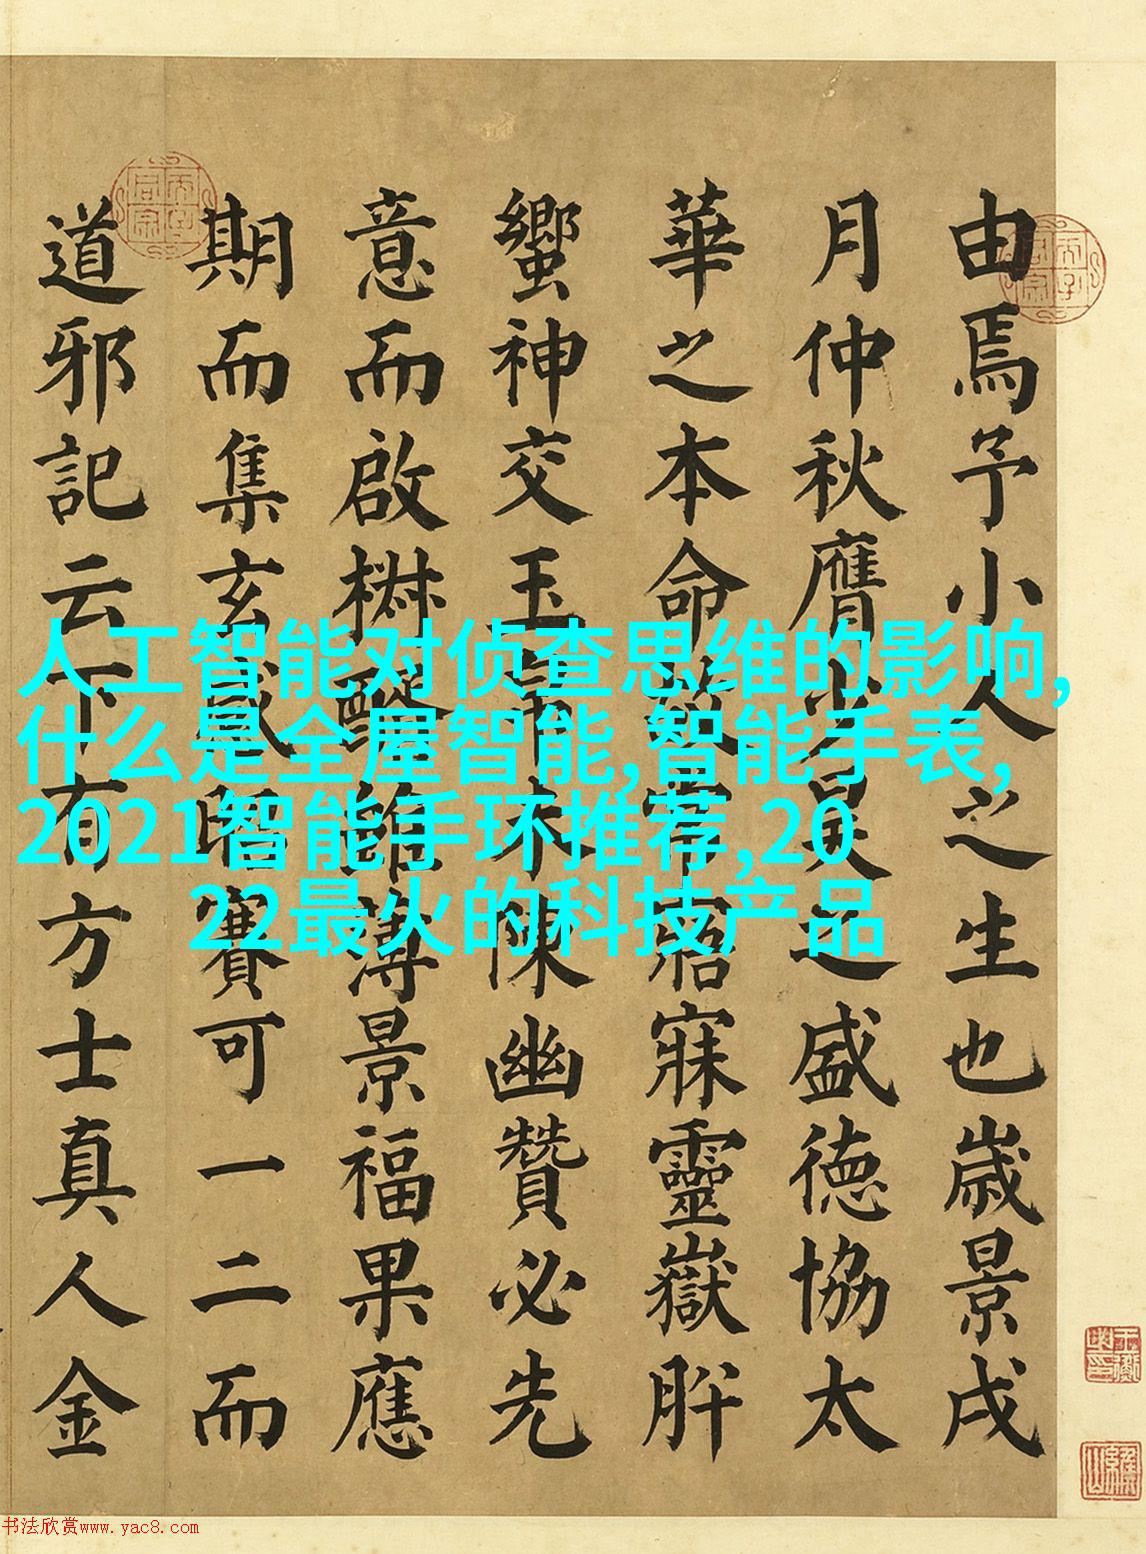 由焉予小人之生也歲景戌
月仲秋膺少昊之盛德協太
華之本命故常寤寐靈嶽肸
蠁神交玉未陳幽贊必先
意而啟薄景福果應
期而集玄貺昭賽可一二而
道邪記云下有方士真人金
人工智能对侦查思维的影响,
什么是全屋智能,智能手表,
2021智能手环推荐,20
22最火的科技产品
书法欣赏www.yac8.com